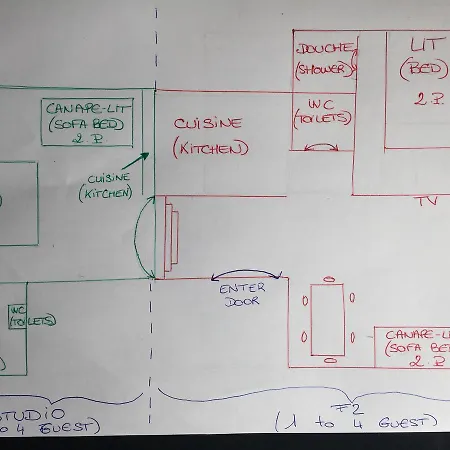 DOUCHE
(SHOWER)
LIT
(BED)
2.P.
CANAPE-LIT
(SOFA BED)
2.P
WC
(TOILETS)
CUISINE
(KITCHEN)
CUISINE
(KITCHEN)
TV
ENTER
DOOR
WC
(TOILETS)
CANAPE-LI
(SOFA BED
2.P
STUDIO
4 GUEST)
F2
(1 to 4 GUEST)